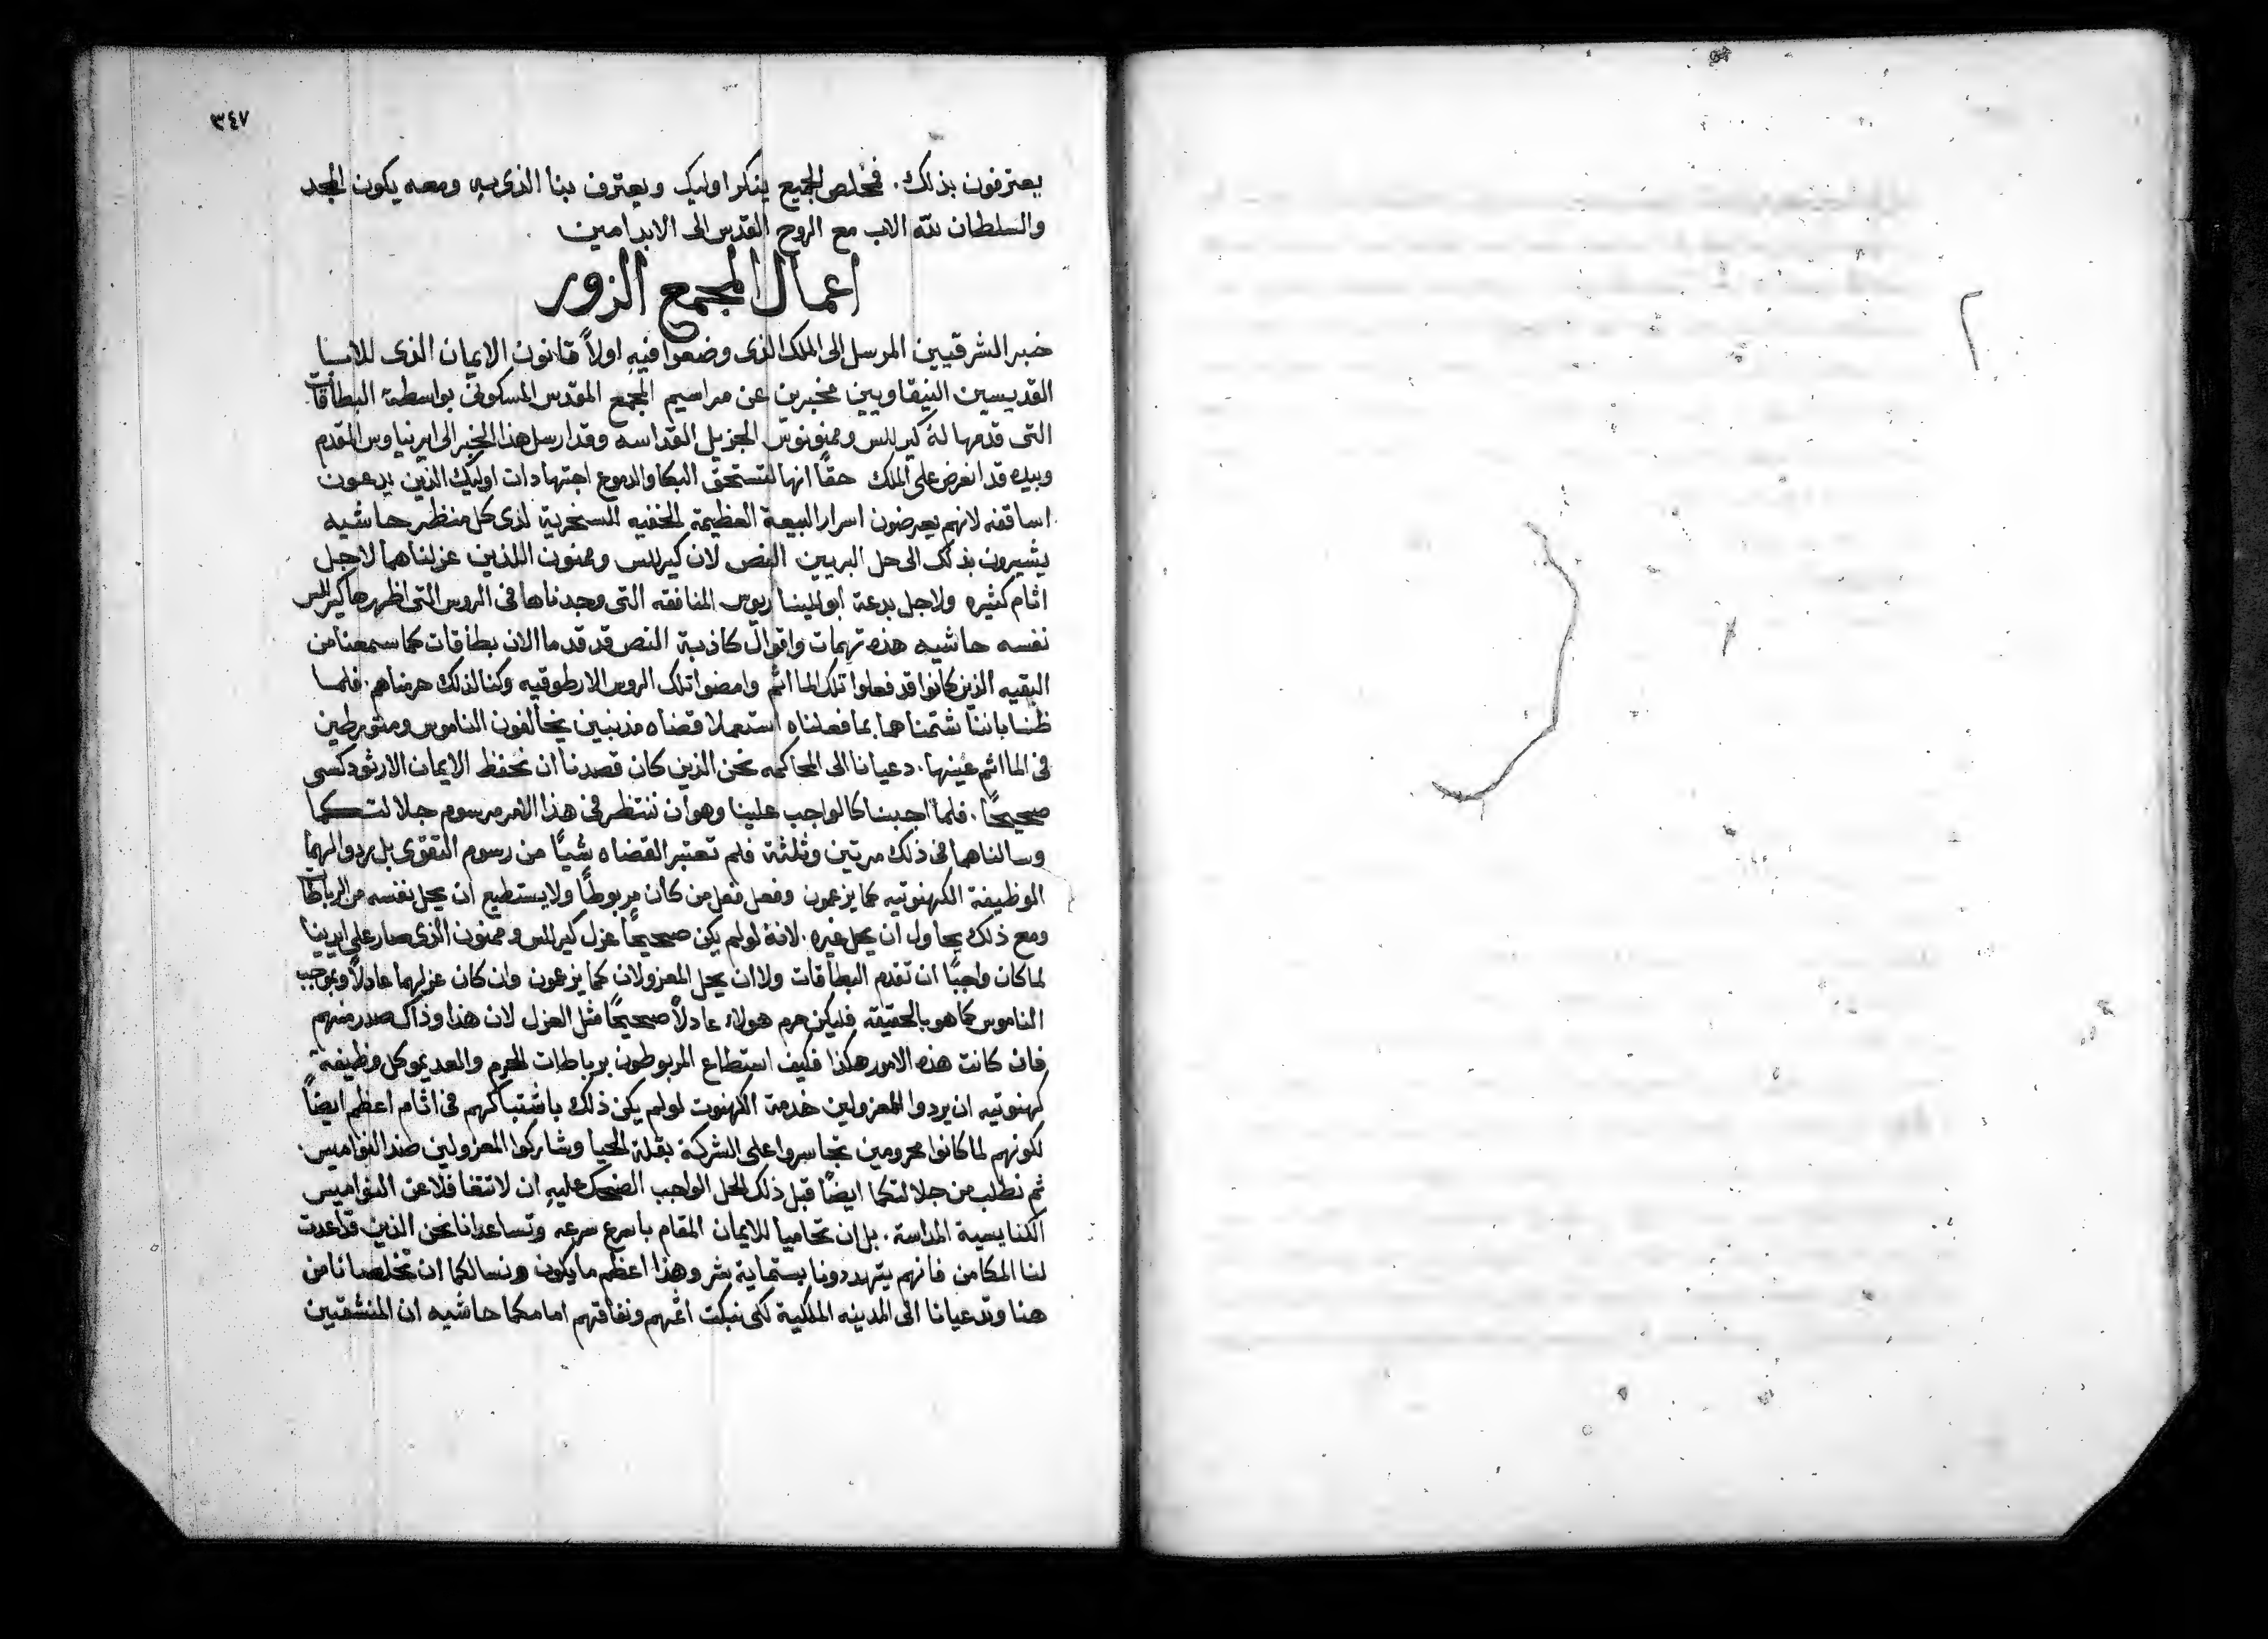 ٣٤٧
يعترفون بذلك. فمخلص الجميع ينكر اوليك ويعترف بنا الذى به ومعه يكون المجد
والسلطان لله الاب مع الروح القدس الى الابد امين
اعمال المجمع الزور
خبر الشرقيين المرسل الى الملك الذى وضعوا فيه اولاً قانون الايمان الذى للابا
القديسين النيقاويين مخبرين عن مراسيم المجمع المقدس المسكونى بواسطة البطاقات
التى قدمها له كيرللس وممنونوس الجزيل القداسه وقد ارسل هذا الخبر الى ايرنياوس المقدم
وبيده قد انعرض على الملك حقاً انها لتستحق البكا والدموع اجتهادات اوليك الذين يدعون
اساقفه لانهم يعرضون اسرار البيعة العظيمة الخفيه للسخرية لذى كل منظر حاشيه
يشيرون بذلك الى حل البريين النص لان كيرللس وممنون اللذين عزلناهما لاجل
اثام كثيره ولاجل بدعة ابوليناريوس المنافقه التى وجدناها فى الروس التى اظهرها كيرللس
نفسه حاشيه هذه تهمات واقوال كاذبة النص قد قدما الان بطاقات كما سمعنا من
البقيه الذين كانوا قد فعلوا تلك الماثم وامضوا تلك الروس الارطوقيه وكنا لذلك حرمناهم. فلما
ظنا باننا شتمناهما بما فعلناه استعملا قضاه مذنبين يخالفون الناموس ومتورطين
فى الماثم عينها. دعيانا الى المحاكمه نحن الذين كان قصدنا ان نحفظ الايمان الارثودكسى
صحيحًا. فلما اجبنا كالواجب علينا وهو ان ننتظر فى هذا الامر مرسوم جلالتكما
وسالناهما فى ذلك مرتين وثلثة فلم تعتبر القضاه شياً من رسوم التقوى بل ردوا لهما
الوظيفة الكهنوتيه كما يزعمون وفعل فعل من كان مربوطًا ولا يستطيع ان يحل نفسه من الرباطات
ومع ذلك يحاول ان يحل غيره. لانه لو لم يكن صحيحاً عزل كيرللس وممنون الذى صار على ايدينا
لما كان واجبًا ان تقدم البطاقات ولا ان يحل المعزولان كما يزعمون وان كان عزلهما عادلاً وبموجب
الناموس كما هو بالحقيقه فليكن حرم هولاء عادلاً صحيحًا مثل العزل لان هذا وذاك صدر منهم
فان كانت هذه الامور هكذا فكيف استطاع المربوطون برباطات الحرم والعديمو كل وظيفة
كهنوتيه ان يردوا للمعزولين خدمة الكهنوت لو لم يكن ذلك باشتباكهم فى اثام اعظم ايضاً
لكونهم لما كانوا محرومين تجاسروا على الشركة بقلة الحيا وشاركوا المعزولين ضد النواميس.
ثم نطلب من جلالتكما ايضًا قبل ذلك الحل الواجب الضحك عليه ان لا تتغافلا عن النواميس
الكنايسية المداسة. بل ان تحاميا للايمان المقام باسرع سرعه وتساعدانا نحن الذين قد اعدت
لنا المكامن فانهم يتهددونا بستماية شر وهذا اعظم ما يكون ونسالكما ان تخلصانا من
هنا وتدعيانا الى المدينه الملكية لكى نبكت اثمهم ونفاقهم امامكما حاشيه ان المنشقين